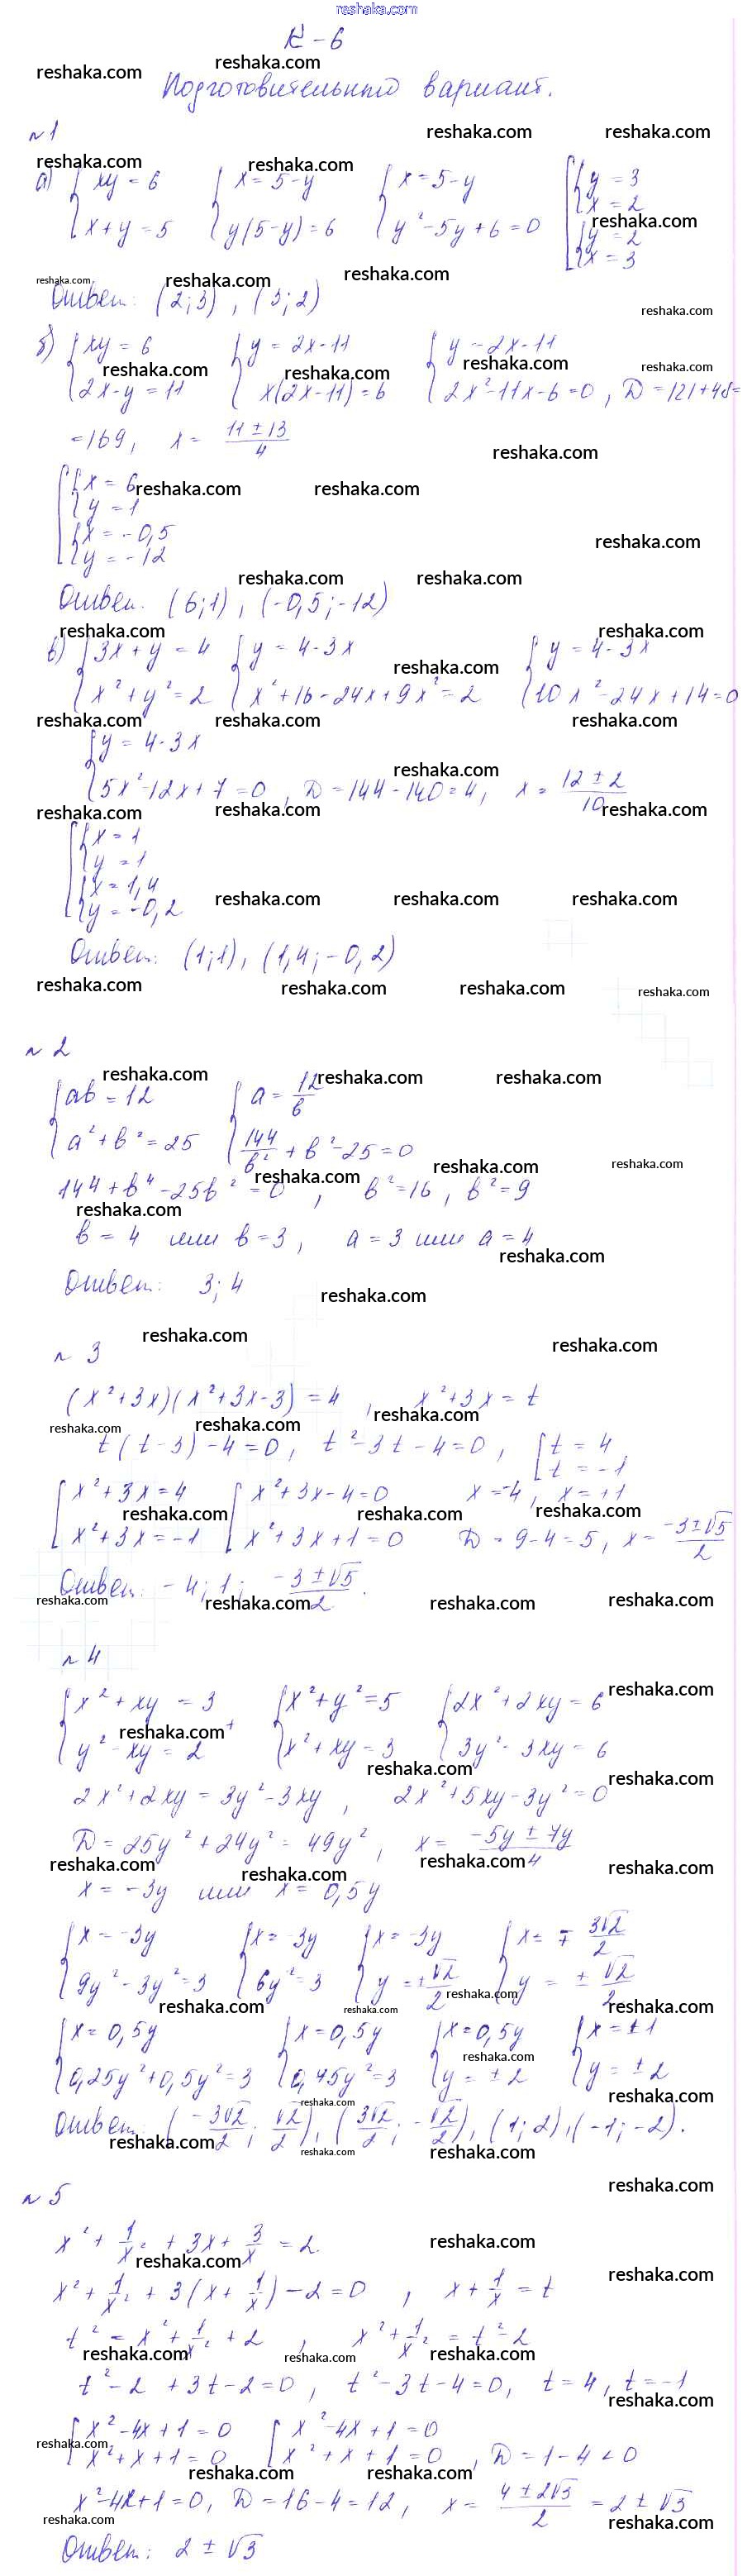 reshaka.com
К-6
Подготовительный вариант.
№1
а) { xy = 6 { x = 5 - y { x = 5 - y [ { y = 3
x + y = 5 y(5 - y) = 6 y² - 5y + 6 = 0 x = 2
{ y = 2
x = 3
Ответ: (2; 3), (3; 2)
б) { xy = 6 { y = 2x - 11 { y = 2x - 11
2x - y = 11 x(2x - 11) = 6 2x² - 11x - 6 = 0, D = 121 + 48 =
= 169, x = (11 ± 13)/4
[ { x = 6
y = 1
{ x = -0,5
y = -12
Ответ. (6; 1), (-0,5; -12)
в) { 3x + y = 4 { y = 4 - 3x { y = 4 - 3x
x² + y² = 2 x² + 16 - 24x + 9x² = 2 10x² - 24x + 14 = 0
{ y = 4 - 3x
5x² - 12x + 7 = 0, D = 144 - 140 = 4, x = (12 ± 2)/10
[ { x = 1
y = 1
{ x = 1,4
y = -0,2
Ответ: (1; 1), (1,4; -0,2)
№ 2
{ ab = 12 { a = 12/b
a² + b² = 25 144/b² + b² - 25 = 0
144 + b⁴ - 25b² = 0, b² = 16, b² = 9
b = 4 или b = 3, a = 3 или a = 4
Ответ: 3; 4
№ 3
(x² + 3x)(x² + 3x - 3) = 4, x² + 3x = t
t(t - 3) - 4 = 0, t² - 3t - 4 = 0, [ t = 4
t = -1
[ x² + 3x = 4 [ x² + 3x - 4 = 0 x = -4, x = +1
x² + 3x = -1 x² + 3x + 1 = 0 D = 9 - 4 = 5, x = (-3 ± √5)/2
Ответ: -4; 1; (-3 ± √5)/2.
№ 4
{ x² + xy = 3 + { x² + y² = 5 { 2x² + 2xy = 6
y² - xy = 2 x² + xy = 3 3y² - 3xy = 6
2x² + 2xy = 3y² - 3xy, 2x² + 5xy - 3y² = 0
D = 25y² + 24y² = 49y², x = (-5y ± 7y)/4
x = -3y или x = 0,5y
{ x = -3y { x = -3y { x = -3y { x = ∓ 3√2/2
9y² - 3y² = 3 6y² = 3 y = ± √2/2 y = ± √2/2
{ x = 0,5y { x = 0,5y { x = 0,5y { x = ±1
0,25y² + 0,5y² = 3 0,75y² = 3 y = ± 2 y = ± 2
Ответ: (-3√2/2; √2/2), (3√2/2; -√2/2), (1; 2), (-1; -2).
№ 5
x² + 1/x² + 3x + 3/x = 2
x² + 1/x² + 3(x + 1/x) - 2 = 0, x + 1/x = t
t² = x² + 1/x² + 2, x² + 1/x² = t² - 2
t² - 2 + 3t - 2 = 0, t² - 3t - 4 = 0, t = 4, t = -1
[ x² - 4x + 1 = 0 [ x² - 4x + 1 = 0
x² + x + 1 = 0 x² + x + 1 = 0, D = 1 - 4 < 0
x² - 4x + 1 = 0, D = 16 - 4 = 12, x = (4 ± 2√3)/2 = 2 ± √3
Ответ: 2 ± √3